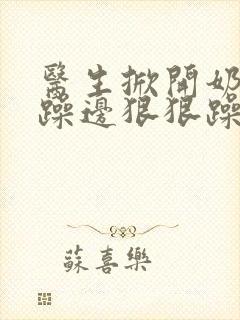 醫生掀開奶
躁邊狠狠躁
蘇喜樂